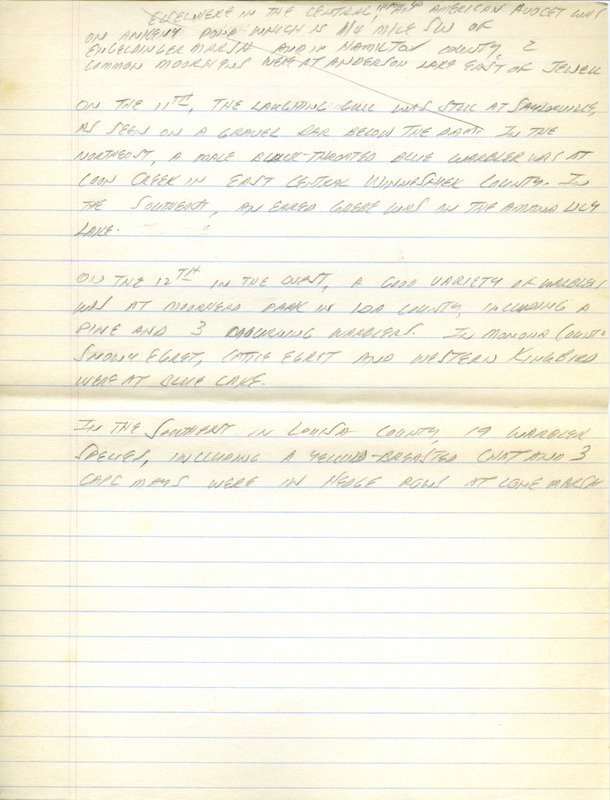 ELSEWHERE IN THE CENTRAL, AMERICAN AVOCET WAS
ON ANKENY POND WHICH IS 1/4 MILE SW OF
ENGELDINGER MARSH AND IN HAMILTON COUNTY, 2
COMMON MOORHENS WERE AT ANDERSON LAKE EAST OF JEWELL
ON THE 11TH, THE LAUGHING GULL WAS STILL AT SAYLORVILLE,
AS SEEN ON A GRAVEL BAR BELOW THE DAM. IN THE
NORTHEAST, A MALE BLACK-THROATED BLUE WARBLER WAS AT
COON CREEK IN EAST CENTRAL WINNESHIEK COUNTY. IN
THE SOUTHEAST, AN EARED GREBE WAS ON THE AMANA LILY
LAKE.
ON THE 12TH IN THE WEST, A GOOD VARIETY OF WARBLERS
WAS AT MOORHEAD PARK IN IDA COUNTY, INCLUDING A
PINE AND 3 MOURNING WARBLERS. IN MONONA COUNTY
SNOWY EGRET, CATTLE EGRET AND WESTERN KINGBIRD
WERE AT BLUE LAKE.
IN THE SOUTHEAST IN LOUISA COUNTY, 19 WARBLER
SPECIES, INCLUDING A YELLOW-BREASTED CHAT AND 3
CAPE MAYS WERE IN HEDGE ROWS AT CONE MARSH